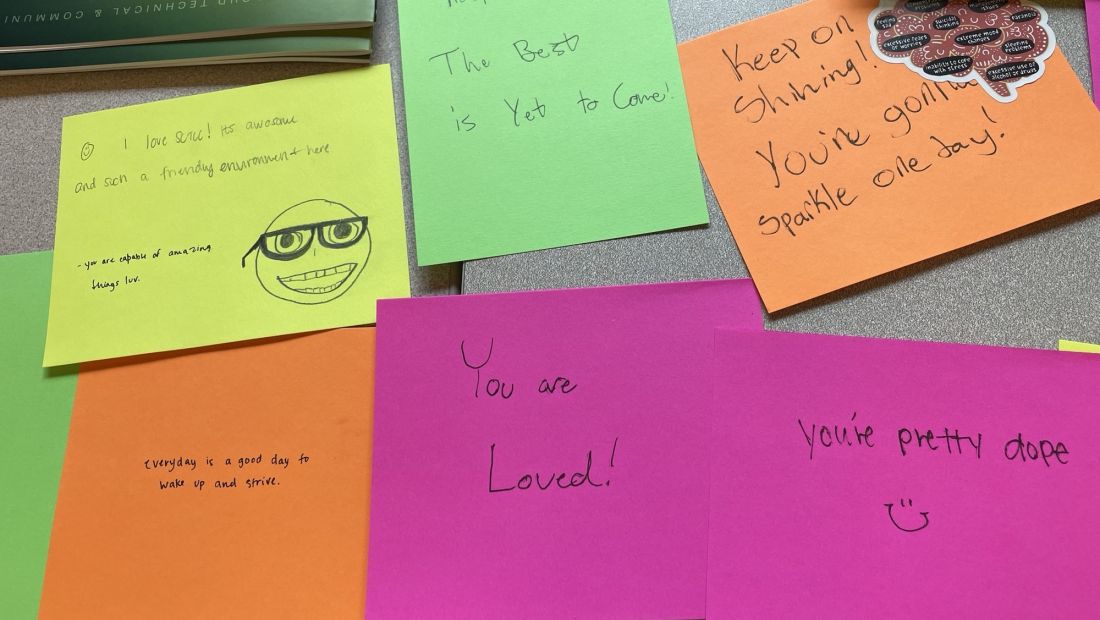 TECHNICAL & COMMUNI
The Best
is Yet to Come!
Keep on
Shining!
You're gonna
sparkle one day!
feeling
sad
suicidal
thinking
paranoia
excessive fears
or worries
extreme mood
changes
sleeping
problems
inability to cope
with stress
excessive use of
alcohol or drugs
I love SCTCC! Its awesome
and such a friendly environment here.
-you are capable of amazing
things luv.
Everyday is a good day to
wake up and strive.
You are
Loved!
You're pretty dope